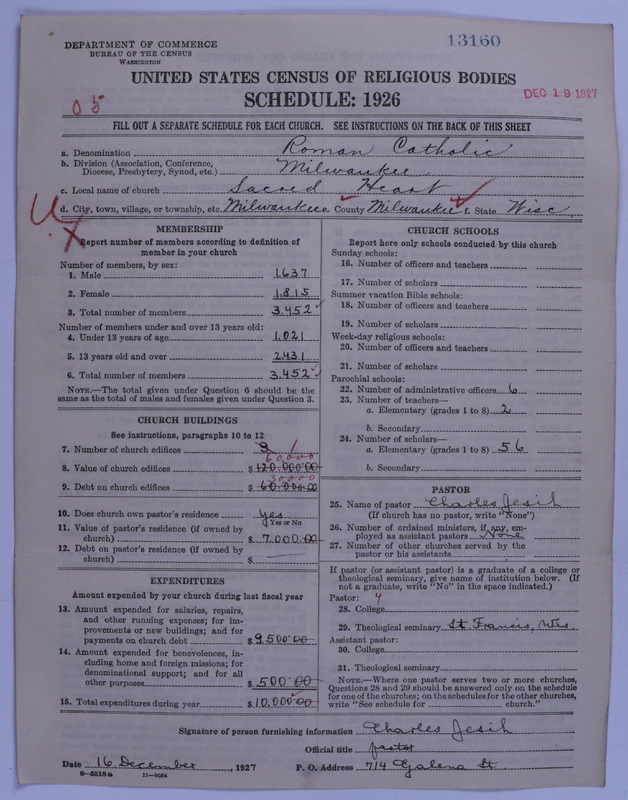 DEPARTMENT OF COMMERCE
BUREAU OF THE CENSUS
WASHINGTON
13160
UNITED STATES CENSUS OF RELIGIOUS BODIES
SCHEDULE: 1926
DEC 19 1927
05
FILL OUT A SEPARATE SCHEDULE FOR EACH CHURCH. SEE INSTRUCTIONS ON THE BACK OF THIS SHEET
a. Denomination Roman Catholic
b. Division (Association, Conference, Diocese, Presbytery, Synod, etc.) Milwaukee
c. Local name of church Sacred Heart
d. City, town, village, or township, etc. Milwaukee e. County Milwaukee f. State Wisc
MEMBERSHIP
Report number of members according to definition of member in your church
Number of members, by sex:
1. Male 1637
2. Female 1815
3. Total number of members 3452
Number of members under and over 13 years old:
4. Under 13 years of age 1021
5. 13 years old and over 2431
6. Total number of members 3,452
NOTE.—The total given under Question 6 should be the same as the total of males and females given under Question 3.
CHURCH BUILDINGS
See instructions, paragraphs 10 to 12
7. Number of church edifices 1
60,000
8. Value of church edifices $ 120.000.00
30,000
9. Debt on church edifices $ 60.000.00
10. Does church own pastor's residence yes
Yes or No
11. Value of pastor's residence (if owned by church) $ 7.000.00
12. Debt on pastor's residence (if owned by church) $
EXPENDITURES
Amount expended by your church during last fiscal year
13. Amount expended for salaries, repairs, and other running expenses; for improvements or new buildings; and for payments on church debt $ 9,500.00
14. Amount expended for benevolences, including home and foreign missions; for denominational support; and for all other purposes $ 500.00
15. Total expenditures during year $ 10,000.00
CHURCH SCHOOLS
Report here only schools conducted by this church
Sunday schools:
16. Number of officers and teachers
17. Number of scholars
Summer vacation Bible schools:
18. Number of officers and teachers
19. Number of scholars
Week-day religious schools:
20. Number of officers and teachers
21. Number of scholars
Parochial schools:
22. Number of administrative officers 6
23. Number of teachers—
a. Elementary (grades 1 to 8) 2
b. Secondary
24. Number of scholars—
a. Elementary (grades 1 to 8) 56
b. Secondary
PASTOR
25. Name of pastor Charles Jesih
(If church has no pastor, write "None")
26. Number of ordained ministers, if any, employed as assistant pastors None
27. Number of other churches served by the pastor or his assistants
If pastor (or assistant pastor) is a graduate of a college or theological seminary, give name of institution below. (If not a graduate, write "No" in the space indicated.)
Pastor:
28. College
29. Theological seminary St. Francis, Wis.
Assistant pastor:
30. College
31. Theological seminary
NOTE.—Where one pastor serves two or more churches, Questions 28 and 29 should be answered only on the schedule for one of the churches; on the schedules for the other churches, write "See schedule for church."
Signature of person furnishing information Charles Jesih
Official title pastor
Date 16 December, 1927 P. O. Address 714 Galena St
8-5518a 11-9054